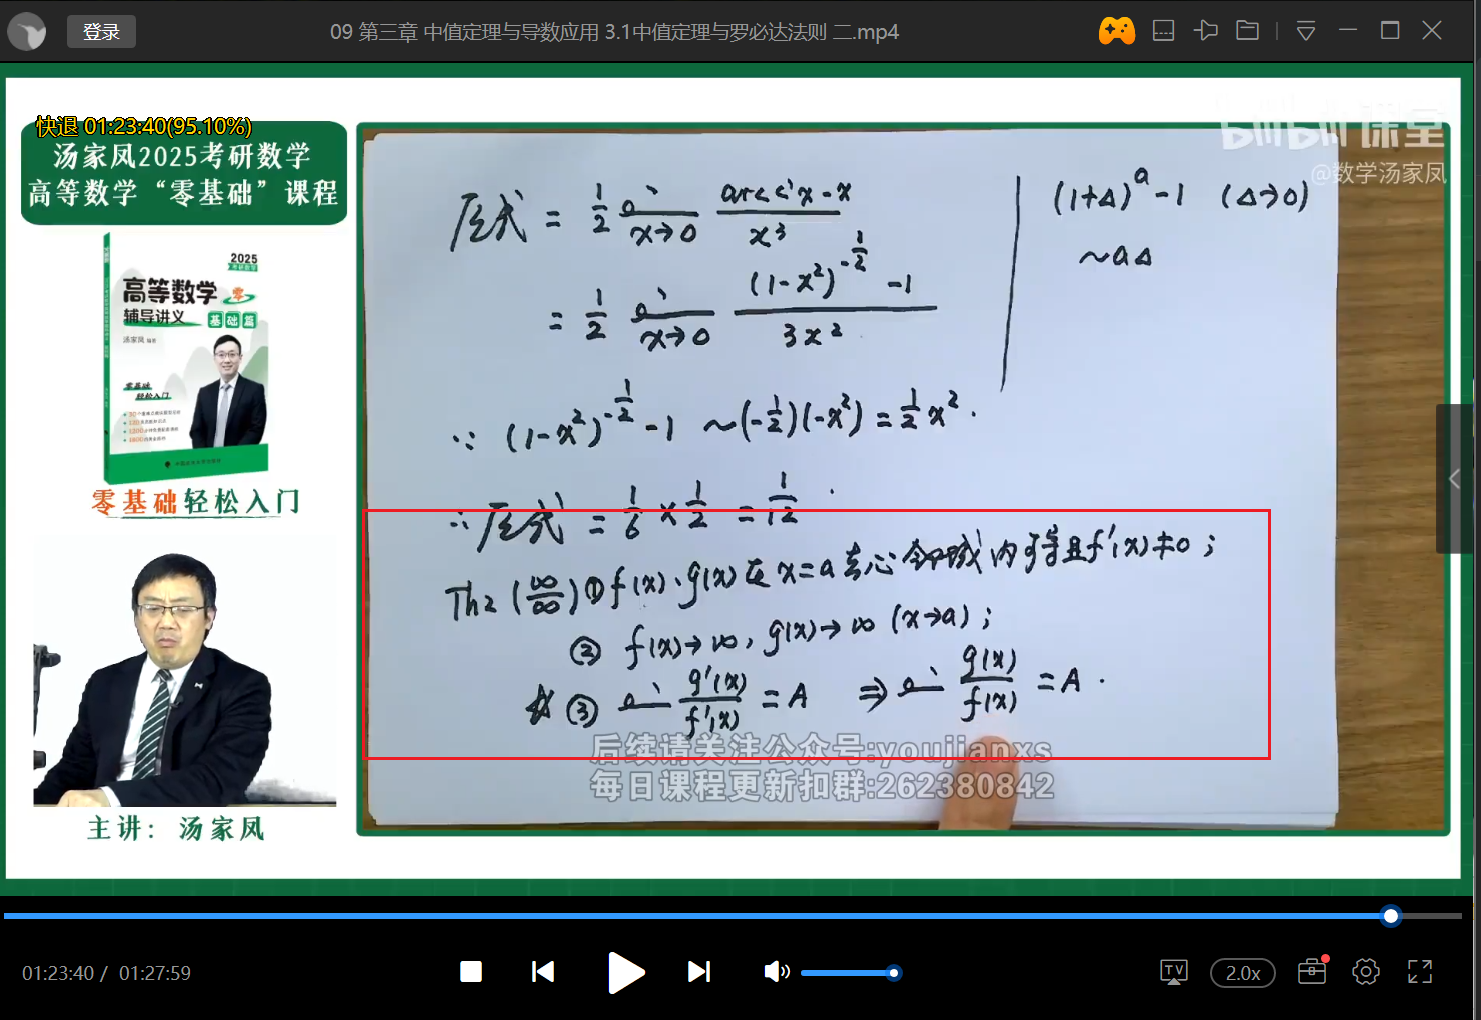 登录
09 第三章 中值定理与导数应用 3.1中值定理与罗必达法则 二.mp4
快退 01:23:40(95.10%)
汤家凤2025考研数学
高等数学“零基础”课程
bilibili 课堂
@数学汤家凤
2025
高等数学 零
辅导讲义 基础篇
汤家凤 编著
零基础
轻松入门
零基础轻松入门
主讲：汤家凤
原式 = 1/2 lim x→0 (arcsin x - x)/x³
= 1/2 lim x→0 ((1-x²)^(-1/2) - 1)/3x²
(1+Δ)^a - 1 (Δ→0)
~aΔ
∵ (1-x²)^(-1/2) - 1 ~(-1/2)(-x²) = 1/2 x².
∴ 原式 = 1/6 × 1/2 = 1/12.
Th2 (∞/∞) ① f(x)、g(x)在x=a去心邻域内可导且f'(x)≠0；
② f(x)→∞, g(x)→∞ (x→a)；
③ lim g'(x)/f'(x) = A ⇒ lim g(x)/f(x) = A.
后续请关注公众号:youjianxs
每日课程更新扣群:262380842
01:23:40 / 01:27:59
TV
2.0x